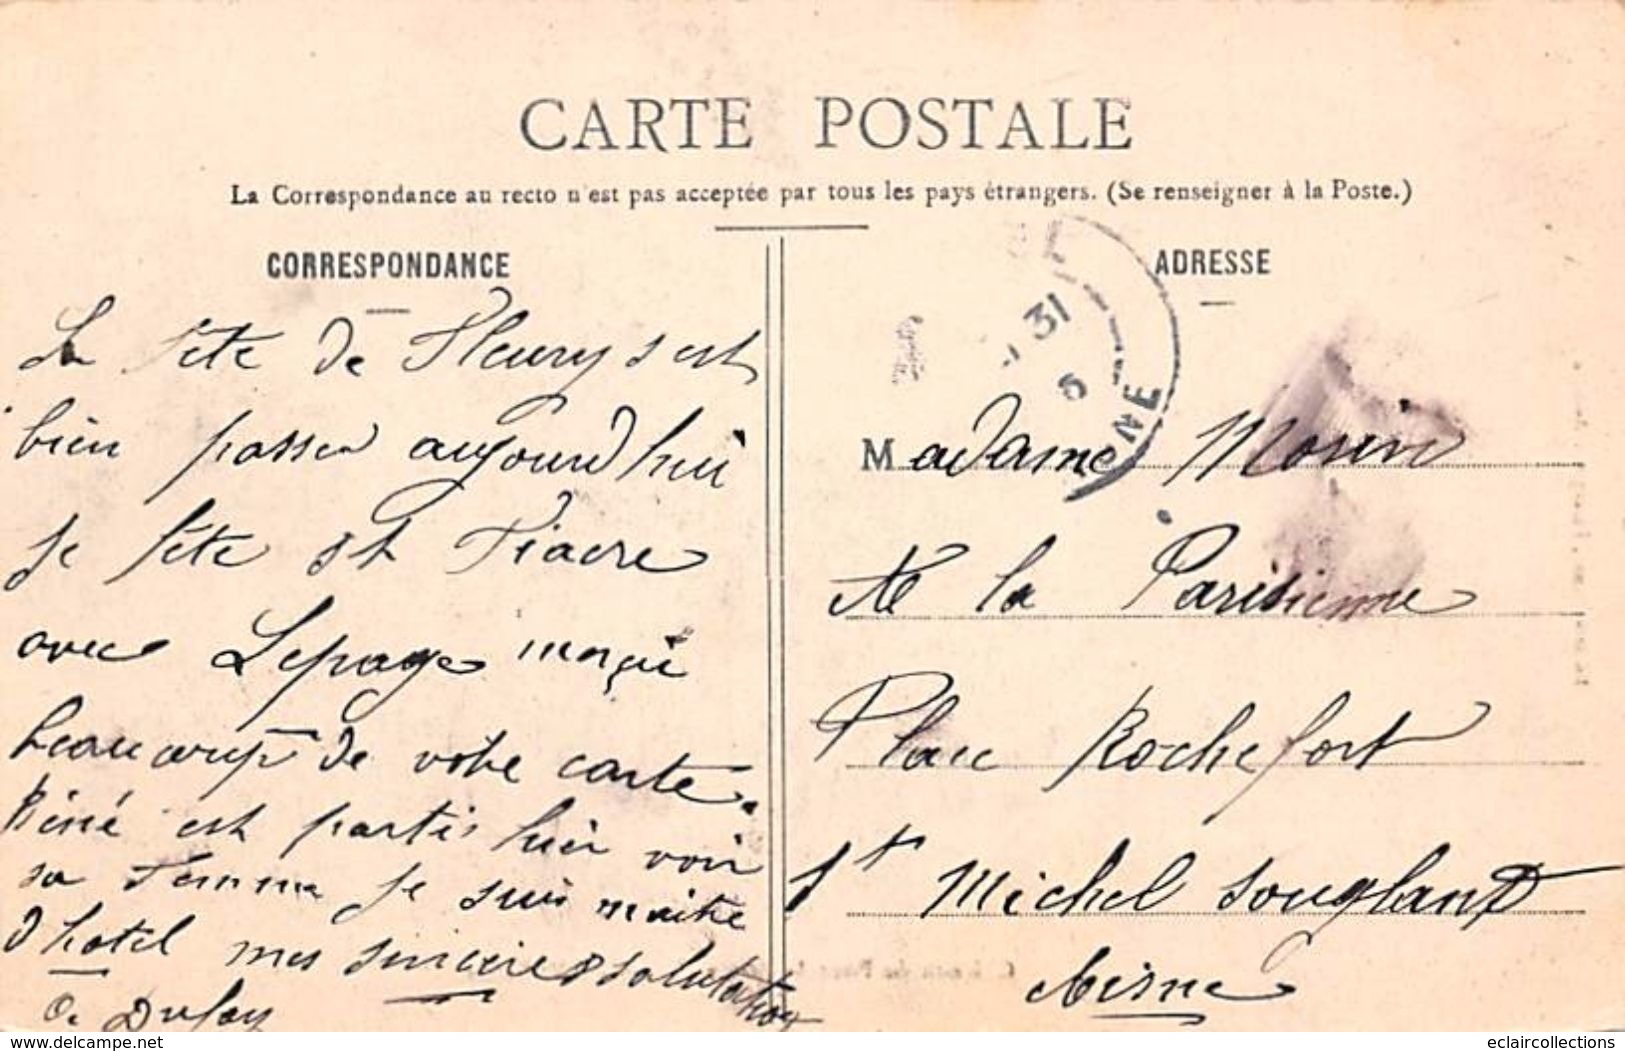 CARTE POSTALE
La Correspondance au recto n'est pas acceptée par tous les pays étrangers. (Se renseigner à la Poste.)
CORRESPONDANCE
La fête de Fleury s est
bien passer aujourd hui
je fête st Fiacre
avec Lepage merçi
beaucoup de votre carte.
Réné est partis hier voir
sa femme je suis maitre
d hotel mes sincères salutation
O. Dufay
ADRESSE
31
6
NE
Madame Morin
A la Parisienne
Place Rochefort
St Michel Sougland
Aisne
delcampe.net
eclaircollections